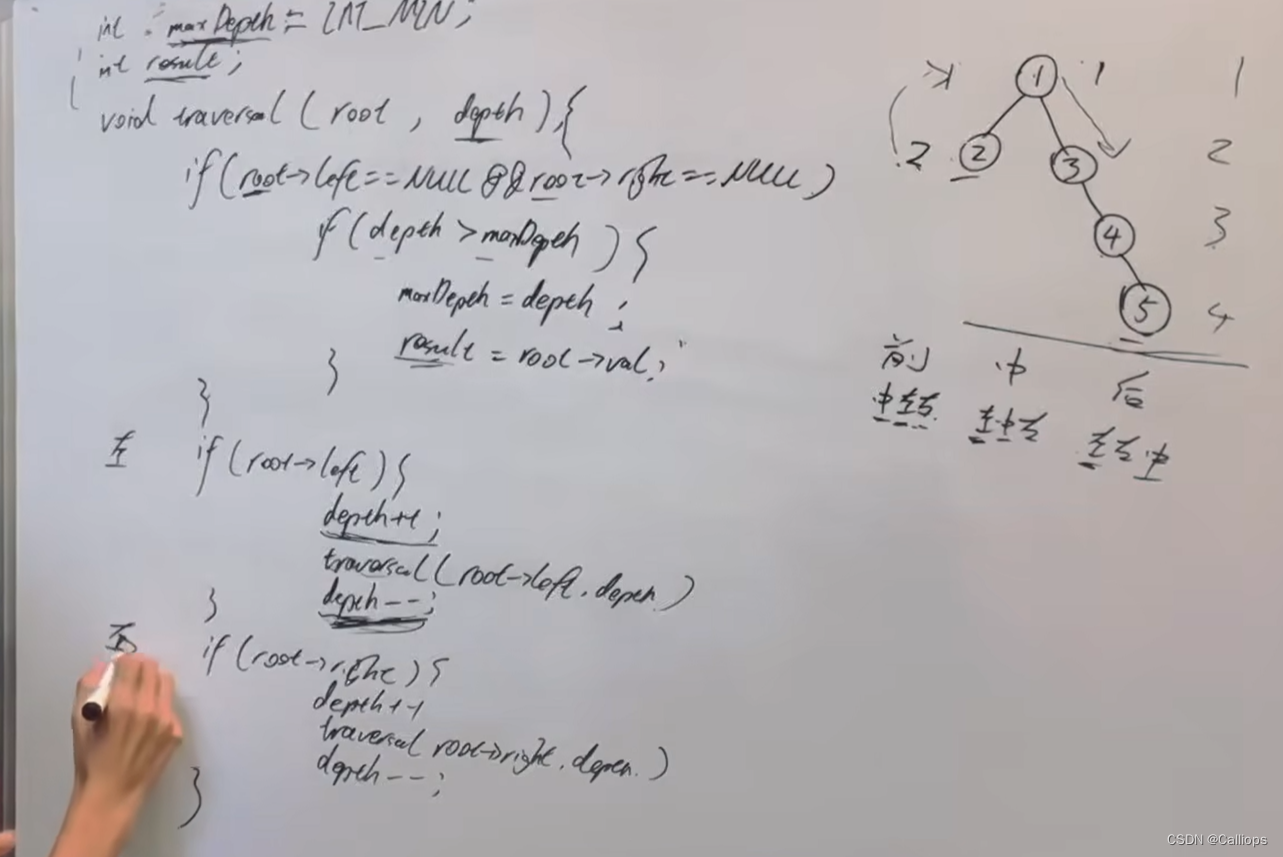 int maxDepth = INT_MIN;
int result;
void traversal ( root , depth ) {
if ( root->left == NULL && root->right == NULL )
if ( depth > maxDepth ) {
maxDepth = depth ;
result = root->val;
}
}
左 if ( root->left ) {
depth++ ;
traversal ( root->left, depth )
depth-- ;
}
右 if ( root->right ) {
depth++
traversal root->right, depth )
depth-- ;
}
1 1 1
2 2 3 2
4 3
5 4
前 中 后
中左右 左中右 左右中
CSDN @Calliops